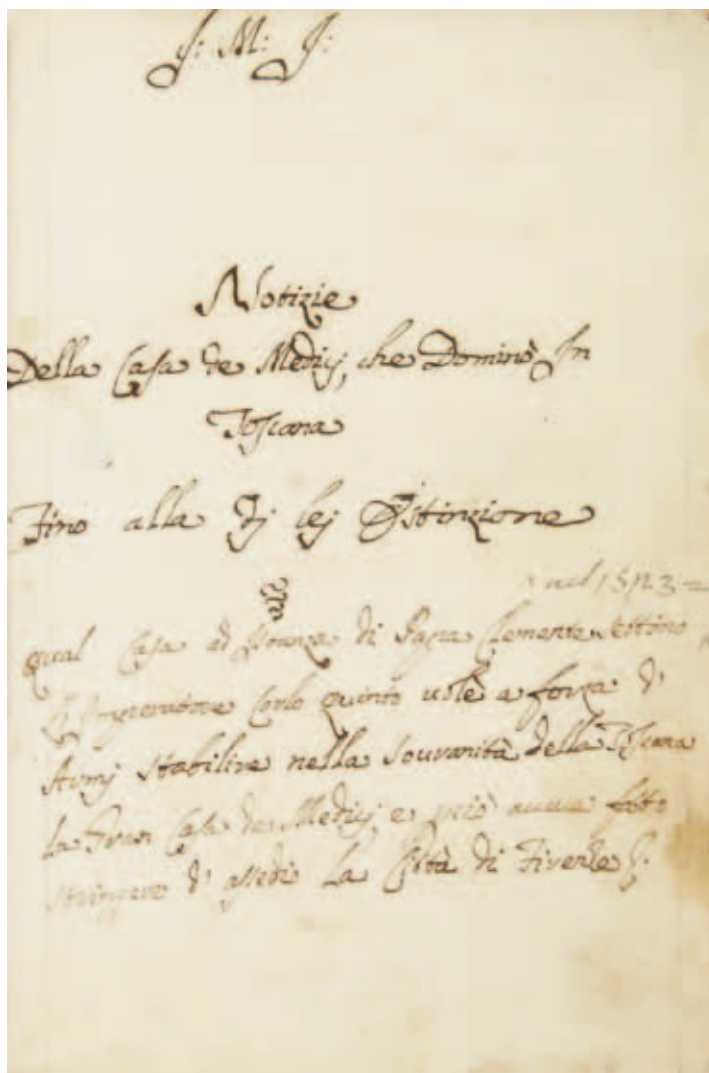 J: M: J:
Notizie
Della Casa de Medicj, che Dominò In
Toscana
Fino alla Dj lej Estinzione
nel
qual Casa ad Istanza di Papa Clemente Settimo
Carlo quinto volle a forza d'
Armj stabilire nella souranità della Toscana
la Gran Casa de Medicj, e perciò aueua fatto
stringere d' assedio la Città di Firenze